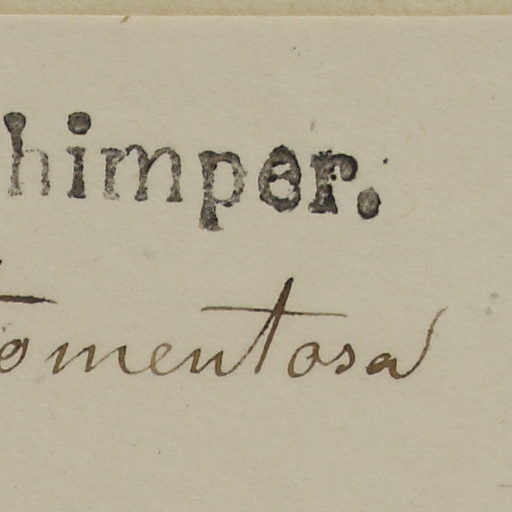 himper.
tomentosa